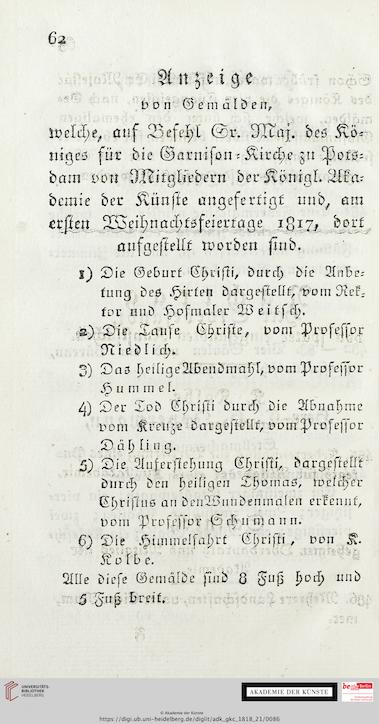 62
Anzeige
von Gemälden,
welche, auf Befehl Sr. Maj. des Kö-
niges für die Garnison-Kirche zu Pots-
dam von Mitgliedern der Königl. Aka-
demie der Künste angefertigt und, am
ersten Weihnachtsfeiertage 1817, dort
aufgestellt worden sind.
1) Die Geburt Christi, durch die Anbe-
tung des Hirten dargestellt, vom Rek-
tor und Hofmaler Weitsch.
2) Die Taufe Christe, vom Professor
Niedlich.
3) Das heilige Abendmahl, vom Professor
Hummel.
4) Der Tod Christi durch die Abnahme
vom Kreuze dargestellt, vom Professor
Dähling.
5) Die Auferstehung Christi, dargestellt
durch den heiligen Thomas, welcher
Christus an den Wundenmalen erkennt,
vom Professor Schumann.
6) Die Himmelfahrt Christi, von K.
Kolbe.
Alle diese Gemälde sind 8 Fuß hoch und
5 Fuß breit.
UNIVERSITÄTS-
BIBLIOTHEK
HEIDELBERG
AKADEMIE DER KÜNSTE
© Akademie der Künste
https://digi.ub.uni-heidelberg.de/diglit/adk_gkc_1818_21/0086